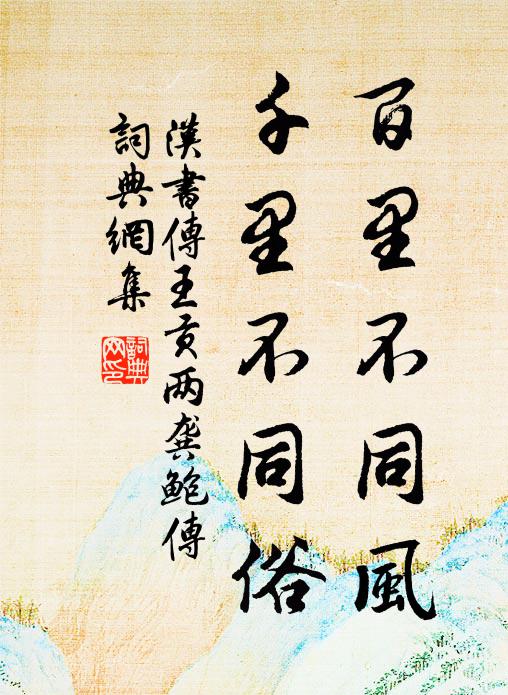 百里不同風
千里不同俗
漢書傳王貢两龔鮑傳
詞典網集
詞典
网印